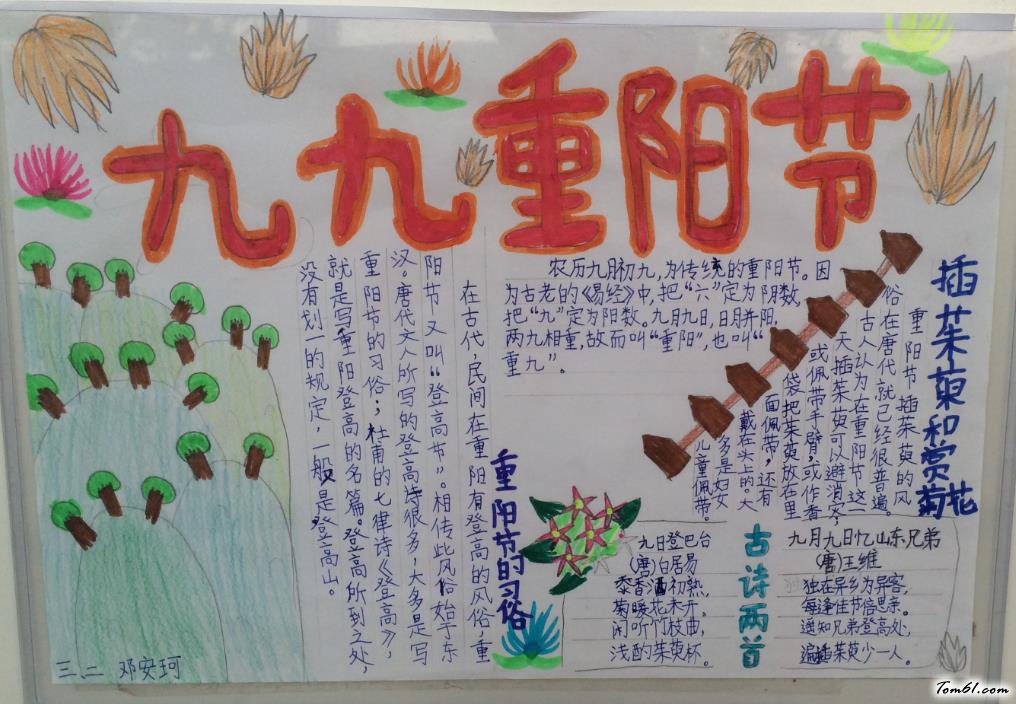 九九重阳节
农历九月初九,为传统的重阳节。因
为古老的《易经》中,把“六”定为阴数,
把“九”定为阳数。九月九日,日月并阳,
两九相重,故而叫“重阳”,也叫“
重九”。
重阳节的习俗
在古代,民间在重阳有登高的风俗,重
阳节又叫“登高节”。相传此风俗始于东
汉。唐代文人所写的登高诗很多,大多是写
重阳节的习俗;杜甫的七律诗《登高》,
就是写重阳登高的名篇。登高所到之处,
没有划一的规定,一般是登高山。
插茱萸和赏菊花
重阳节插茱萸的风
俗在唐代就已经很普遍。
古人认为在重阳节这一
天插茱萸可以避消灾,
或佩带手臂,或作香
袋把茱萸放在里
面佩带,还有
戴在头上的。大
多是妇女
儿童佩带。
古诗两首
九日登巴台
(唐)白居易
黍香酒初熟,
菊暖花未开。
闲听竹枝曲,
浅酌茱萸杯。
九月九日忆山东兄弟
(唐)王维
独在异乡为异客,
每逢佳节倍思亲。
遥知兄弟登高处,
遍插茱萸少一人。
三.二 邓安珂
Tom61.com